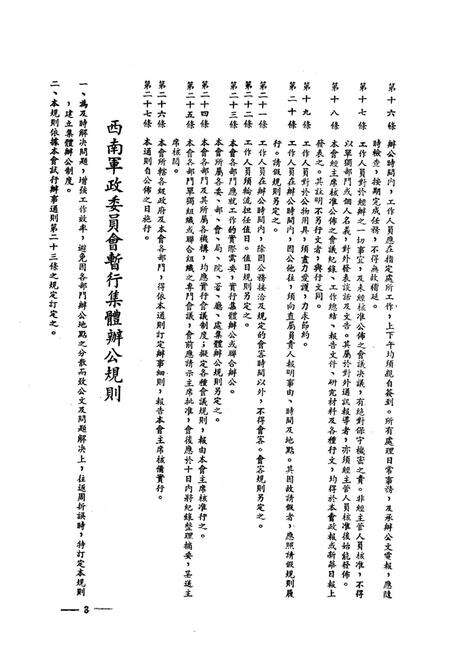 第十六條　辦公時間內，工作人員應在指定處所工作，上下午均須親自簽到。所有處理日常事務，及承辦公文電報，應隨
時檢查，按期完成任務，不得無故積延。
第十七條　工作人員對於經辦之一切事宜，及未經核准公佈之會議決議，有絕對保守機密之責。非經主管人員核准，不得
以單獨部門或個人名義，對外發表談話及文告。其屬於對外通訊報導者，亦須經主管人員核准後始能發佈。
第十八條　本會經主席核准公佈之會議紀錄、工作總結、報告文件、研究材料及各種行文，均得於本會政報或新華日報上
發表之。其註明不另行文者，與行文同。
第十九條　工作人員對於公物用具，須盡力愛護，力求節約。
第二十條　工作人員在辦公時間內，因公他往，須向直屬負責人報明事由、時間及地點。其因故請假者，應照請假規則履
行。請假規則另定之。
第二十一條　工作人員在辦公時間內，除因公務接洽及規定的會客時間以外，不得會客。會客規則另定之。
第二十二條　工作人員須輪流担任值日。值日規則另定之。
第二十三條　本會各部門應就工作的實際需要，實行集體辦公或聯合辦公。
本會所屬各委、部、會、局、院、署、廳、處集體辦公規則另定之。
第二十四條　本會各部門及其所屬各機構，均應實行會議制度；擬定各種會議規則，報由本會主席核准行之。
第二十五條　本會各部門單獨組織或聯合組織之專門會議，會前應請示主席批准，會後應於十日內將紀錄整理摘要，呈送主
席核閱。
第二十六條　本會所轄各級政府及本會各部門，得依本通則訂定辦事細則，報告本會主席核備實行。
第二十七條　本通則自公佈之日施行。
西南軍政委員會暫行集體辦公規則
一、為及時解決問題，增強工作效率，避免因各部門辦公地點之分散而致公文及問題解決上，往返周折誤時，特訂定本規則
，建立集體辦公制度。
二、本規則依據本會試行辦事通則第二十三條之規定訂定之。
— 3 —